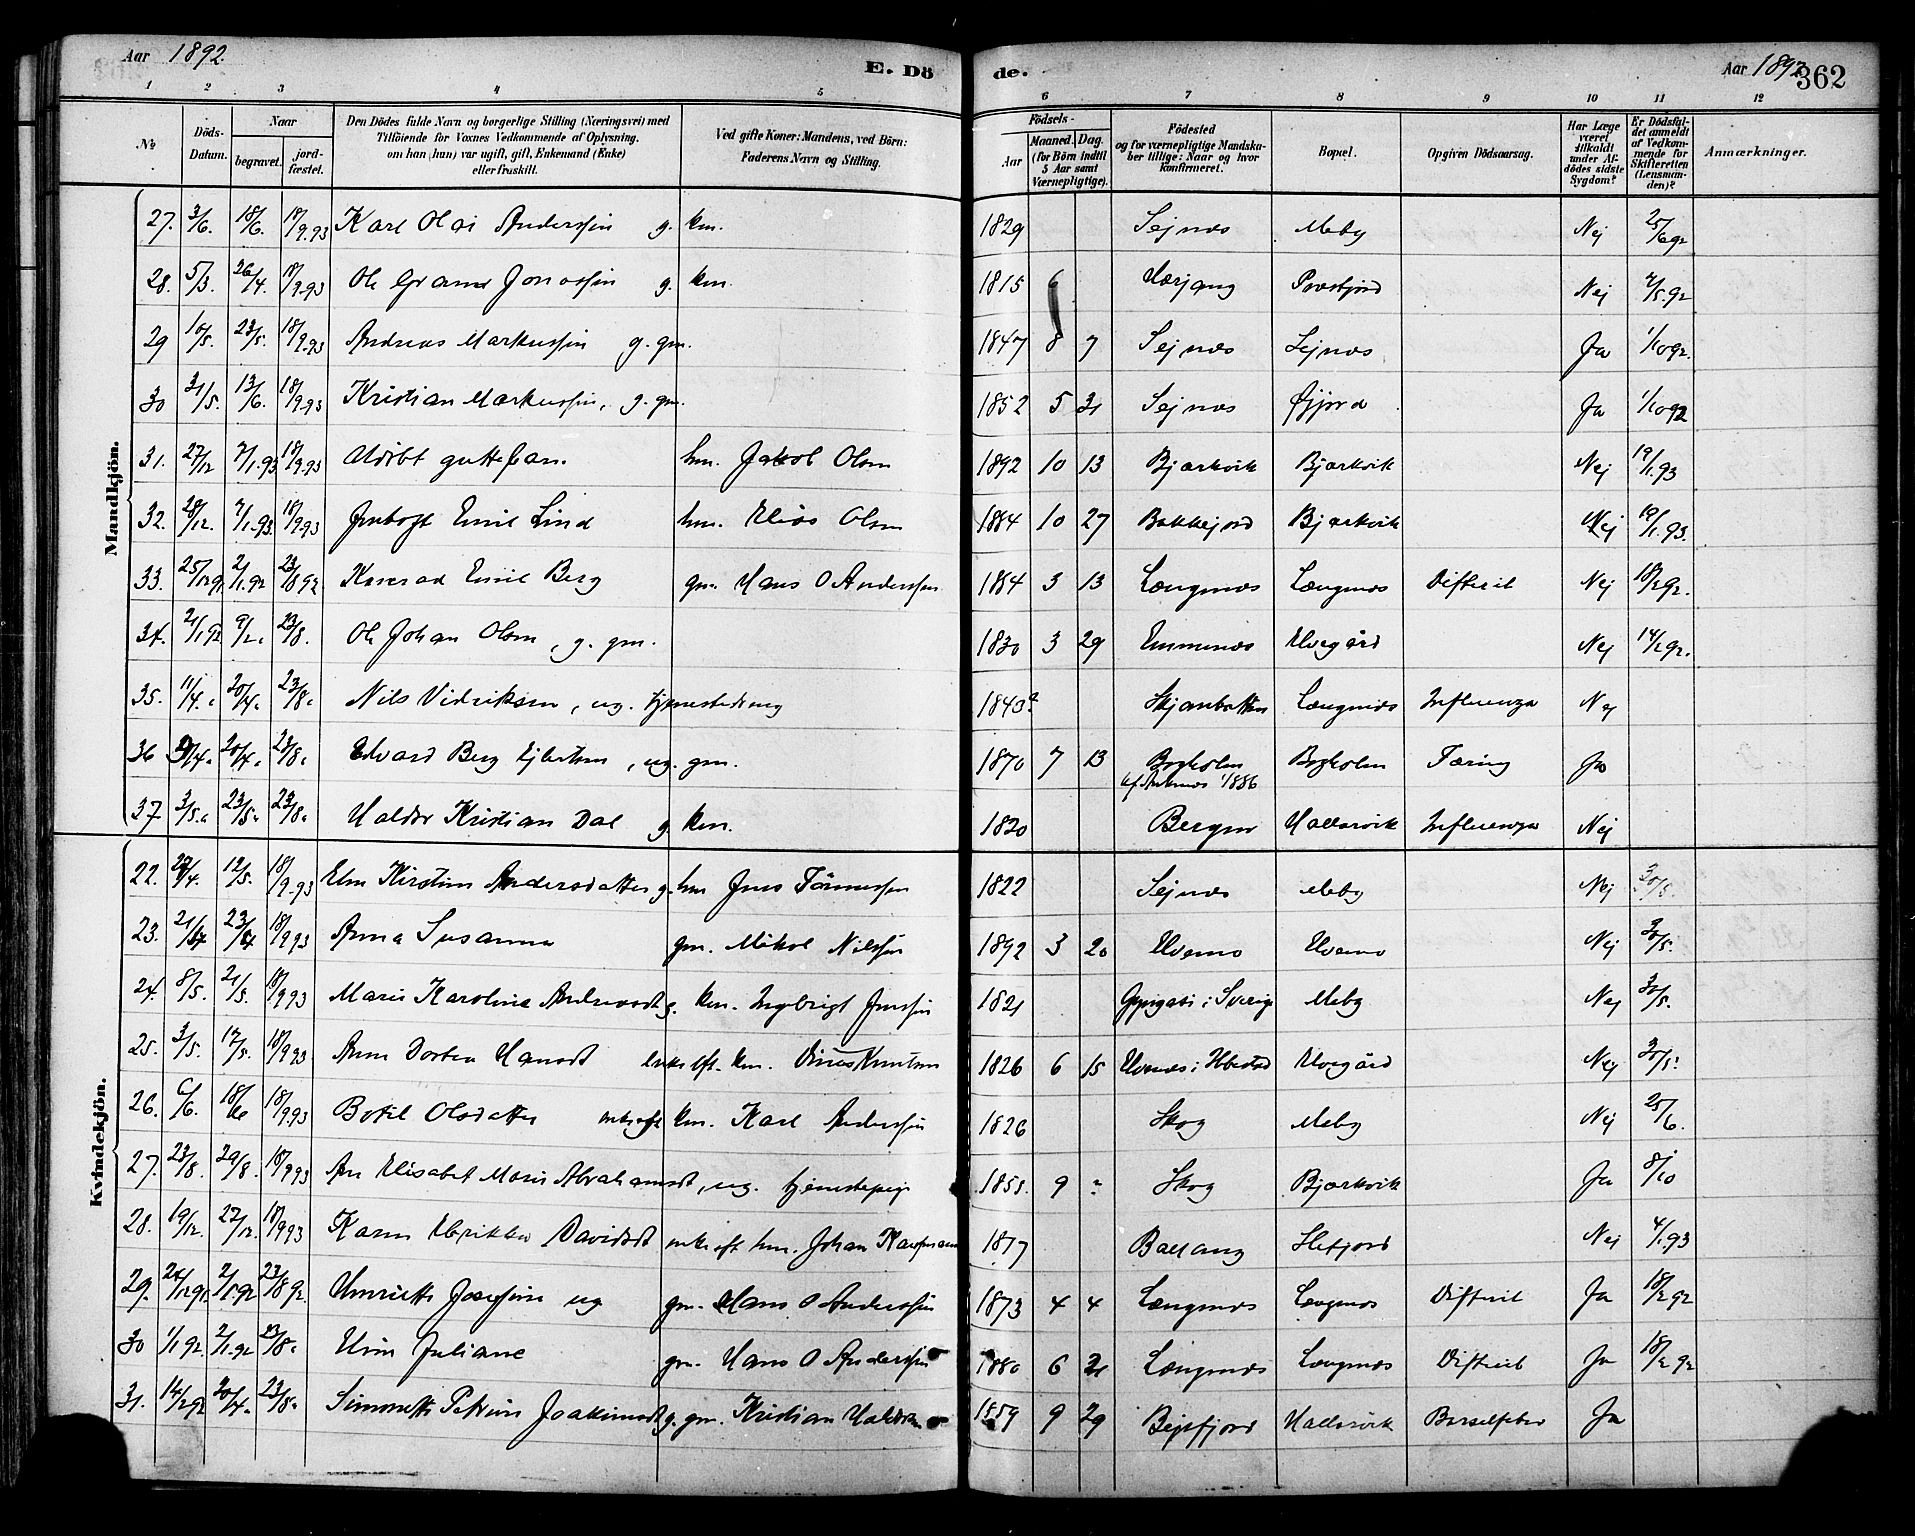 Aar 1892.
E. Dö
de.
Aar 1892
362
1 2 3 4 5 6 7 8 9 10 11 12
No
Döds-Datum.
Naar
begravet.
jord-fæstet.
Den Dödes fulde Navn og borgerlige Stilling (Næringsvei) med
Tilföiende för Voxnes Vedkommende af Oplysning,
om han (hun) var ugift, gift, Enkemand (Enke)
eller fraskilt.
Ved gifte Koner: Mandens, ved Börn:
Faderens Navn og Stilling.
Födsels-
Aar
Maaned. Dag.
(for Börn indtil
5 Aar samt
Værnepligtige).
Födested
og for værnepligtige Mandska-
ber tillige: Naar og hvor
konfirmeret.
Bopæl.
Opgiven Dödsaarsag.
Har Læge
været
tilkaldt
under Af-
dödes sidste
Sygdom?
Er Dödsfal-
det anmeldt
af Vedkom-
mende for
Skifteretten
(Lensman-
den)?
Anmærkninger.
Mandkjön.
27. 3/6. 18/6. 18/9.93 Karl Olai Anderssen g. km. 1829 Sejnæs Meby Nej 25/6 92
28. 5/3. 26/4. 18/9.93 Ole Jonassen g. km. 1815 6 Nej 7/5.92
29 10/5. 23/5. 18/9.93 Andreas Markussen g. gm. 1847 8 7 Sejnæs Sejnæs Ja 1/10 92.
30 31/5. 13/6. 18/9.93 Kristian Markussen, g. gm. 1852 5 31 Sejnæs Øfjord Ja 1/10 92
31. 27/12 7/1.93 18/9.93 Udöbt guttebarn. hm. Jakob Olsen 1892 10 13 Bjærkvik Bjærkvik Nej 19/1.93
32. 28/12. 7/1.93. 18/9.93 Emil Lind hm. Elias Olsen 1884 10 27 Bjærkvik Nej 19/1.93.
33. 25/12 91 2/1.92 23/8 92 Emil Berg gm. Hans O Anderssen 1884 3 13 Længnæs Længnæs Difterit Nej 18/2 92.
34. 21/1 92 9/2. 23/8. Ole Johan Olsen, g. gm. 1830 3 29 Emmenæs Elvegård Nej 14/2 92.
35. 11/4. 20/4. 23/8. Nils Vidriksen, ug. 1843? Længnæs Influenza Nej
36 20/4. 23/8. Edvard Berg Ejlertsen, ug. gm. 1870 7 13 Bogholm Bogholm Tæring Ja
37 3/5. 23/5. 23/8. Haldor Kristian Dal g. km. 1820 Bergen Hallarvik Influenza Nej
Kvindekjön.
22. 12/5. 18/9.93 Elen Kirstine Andersdatter g. hm Jens Tönnessen 1822 Sejnæs Meby Nej 30/5.
23. 18/9 93 Anna Susanna gm. Mikal Nilssen 1892 3 20 Elvemo Elvemo Nej 30/5.
24. 8/5. 21/5. 18/9 93 Maria Karolina g. km. Ingbrigt Jenssen 1821 i Sverige Meby Nej 30/5.
25. 3/5. 17/5. 18/9 93 Ane Dortea Hansdt enke eft. km. 1826 6 15 Elvenæs i Ibbestad Elvegård Nej 30/5.
26. 6/6. 18/6 18/9 93 Botil Olsdatter enke eft km. Karl Anderssen 1826 Skog Meby Nej 25/6.
27. 23/8. 29/8. 18/9 93 An Elisabet Marie Abrahamsdt, ug. tjenestepige 1855. 9 ? Skog Bjærkvik Ja 8/10
28. 19/12. 27/12. 18/9 93 Karen Davidsdt enke eft hm. Johan 1817 Ballang Nej 4/1.93
29. 24/12 91. 2/1 92 23/8 92. Henriette Josefine ug gm. Hans O Anderssen 1873 4 4 Længnæs Længnæs Difterit Ja 18/2 92
30 1/1 92. 2/1.92 23/8. Juliane gm. Hans O Anderssen 1880 6 21 Længnæs Længnæs Difterit Ja 18/2 92
31. 14/2 92 20/4. 23/8. Simonette Petrine Joakimsdt g. gm. Kristian 1859 9 29 Bejsfjord Hallarvik Barselfeber Ja